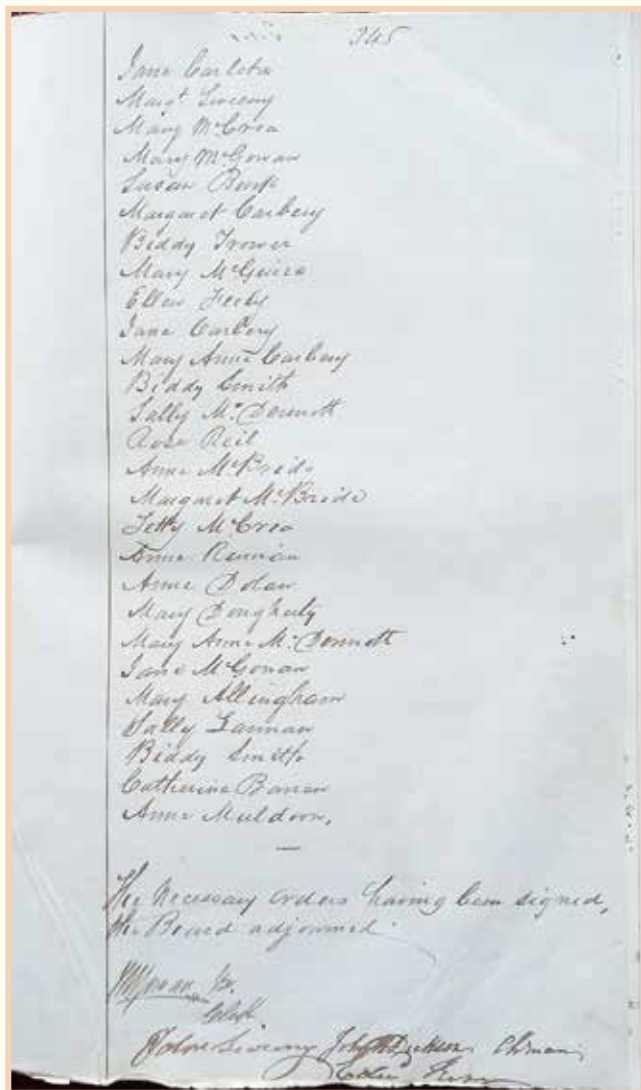 345
Jane Carleton
Margt Sweeny
Mary McCrea
Mary McGowan
Susan
Margaret Carbery
Biddy Trower
Mary McGuire
Ellen Feely
Jane Carbery
Mary Anne Carbery
Biddy Smith
Sally McDermott
Rose Reil
Anne McBride
Margaret McBride
Letty McCrea
Anne
Anne Dolan
Mary Dougherty
Mary Anne McDermott
Jane McGowan
Mary Allingham
Sally Lannan
Biddy Smith
Catherine Barron
Anne Muldoon.
The Necessary orders having been signed,
the Board adjourned.
Clerk
John Sweeny John Chairman